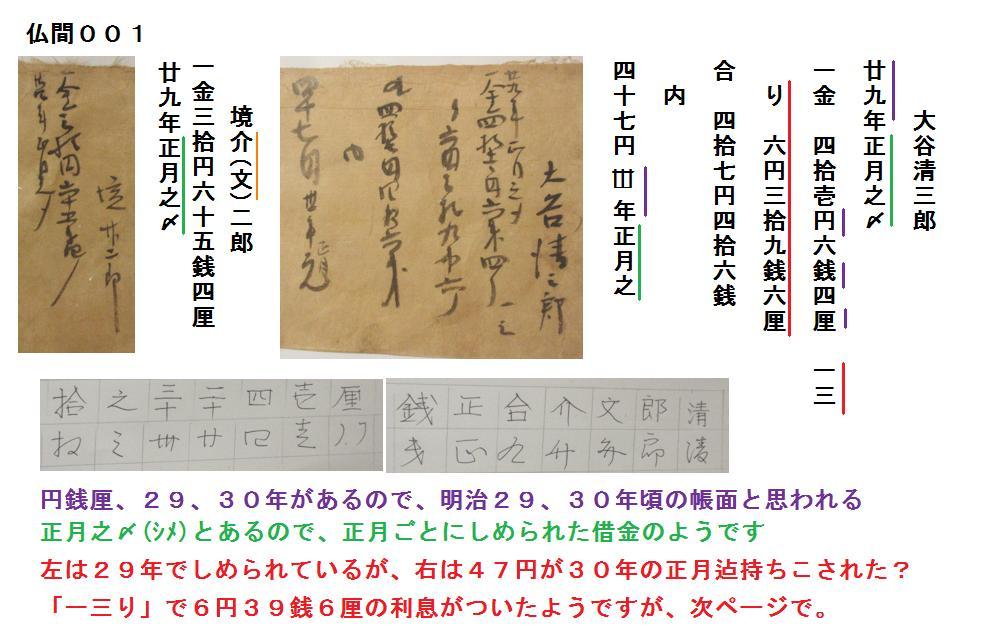 仏間００１
大谷清三郎
廿九年正月之〆
一金　四拾壱円六銭四厘　一三
り　六円三拾九銭六厘
合　四拾七円四拾六銭
内
四十七円 卅年正月之
大谷清三郎
内
境介(文)二郎
一金三拾円六十五銭四厘
廿九年正月之〆
拾 之 三十 二十 四 壱 厘
銭 正 合 介 文 郎 清
円銭厘、２９、３０年があるので、明治２９、３０年頃の帳面と思われる
正月之〆(ｼﾒ)とあるので、正月ごとにしめられた借金のようです
左は２９年でしめられているが、右は４７円が３０年の正月迄持ちこされた？
「一三り」で６円３９銭６厘の利息がついたようですが、次ページで。